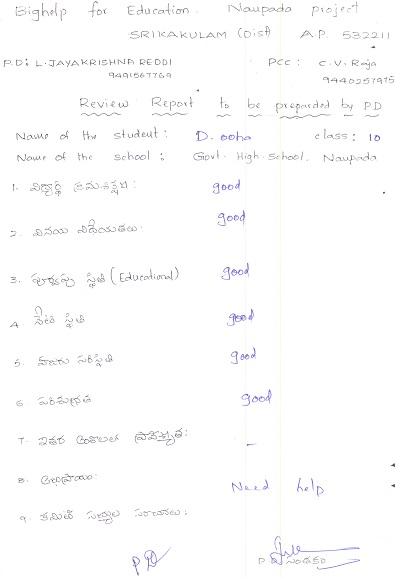 Bighelp for Education. Naupada project
SRIKAKULAM (Dist) A.P. 532211
P.D: L. JAYAKRISHNA REDDI PCC: C.V. Raja
9491567769 9440257975
Review Report to be preparded by PD
Name of the student: D. ooha class: 10
Name of the school: Govt. High School. Naupada
1. విద్యార్థి క్రమశిక్షణ: good
2. వినయ విధేయతలు: good
3. పూర్వపు స్థితి (Educational) good
4. నేటి స్థితి good
5. హాజరు పరిస్థితి good
6. పరిశుభ్రత good
7. ఇతర అంశాలలో ప్రావీణ్యత: -
8. అభిప్రాయం: Need help
9. కమిటీ సభ్యుల సూచనలు:
PD